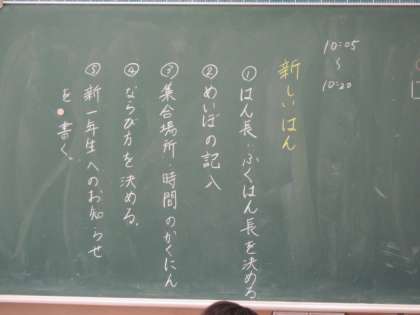 10:05
〜
10:20
新しいはん
①はん長・ふくはん長を決める
②めいぼの記入
③集合場所・時間のかくにん
④ならび方を決める。
⑤新一年生へのお知らせ
を書く。